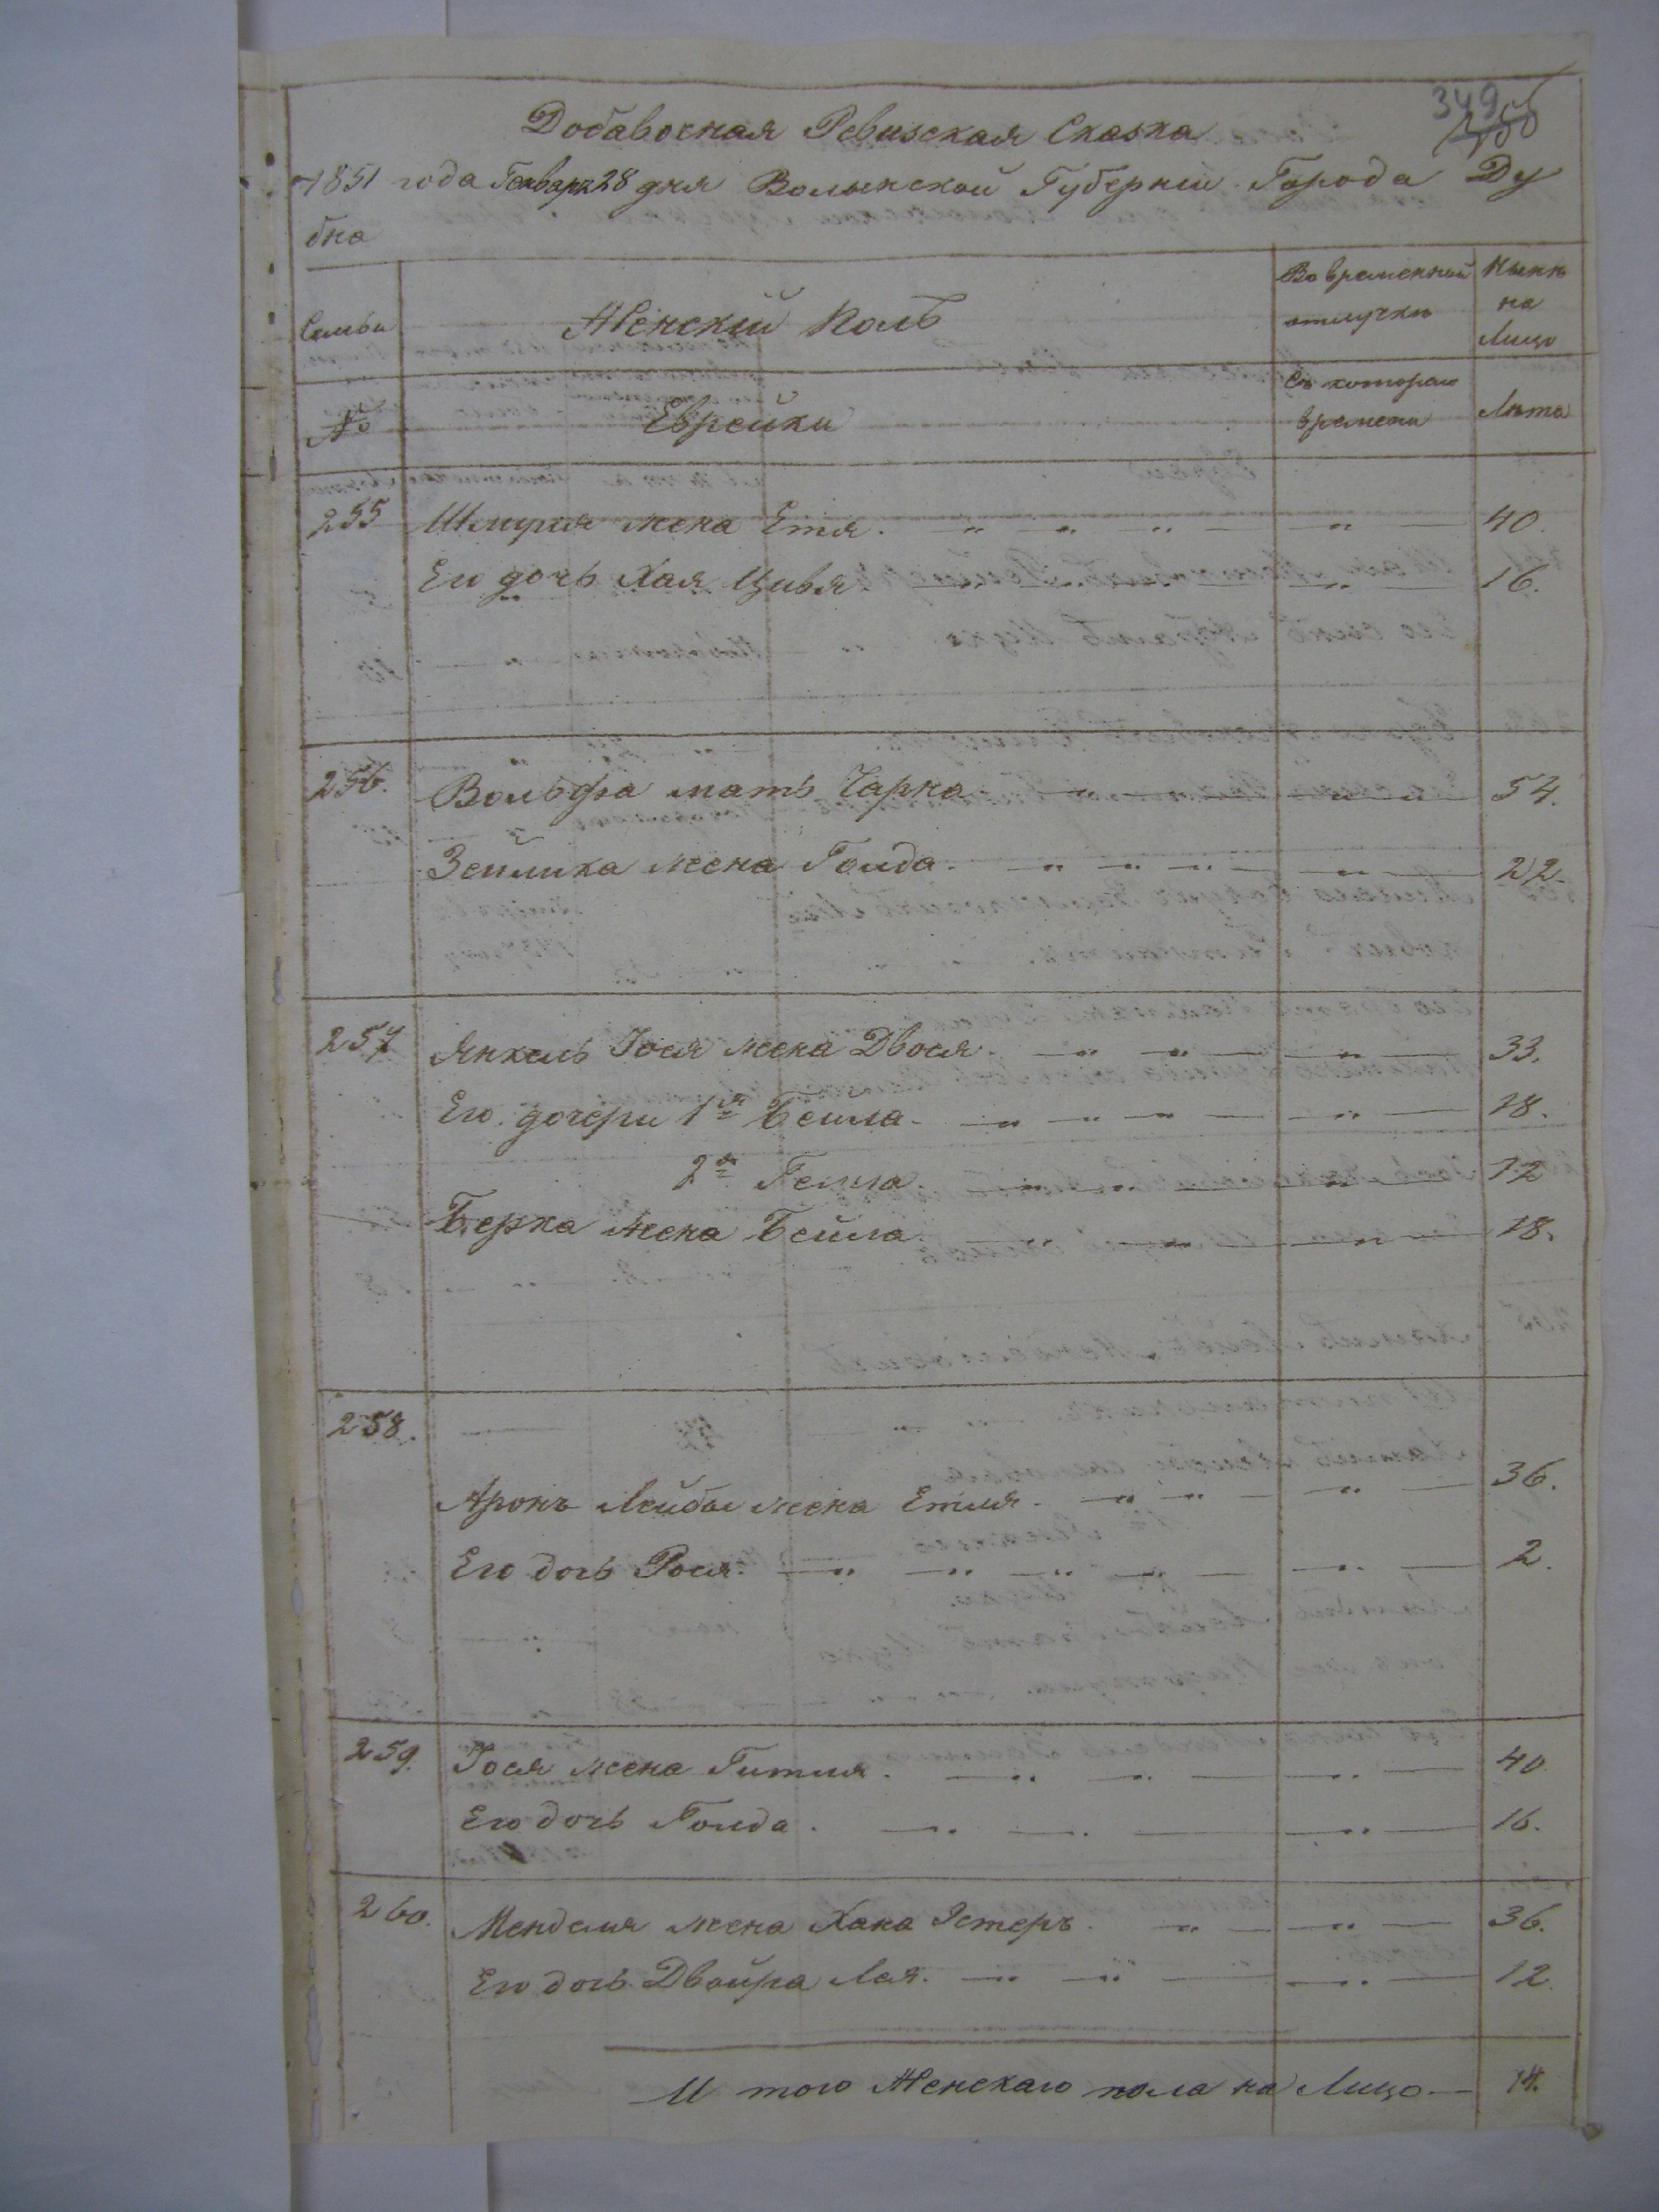 349
Добавочная Ревизская Сказка
1851 года Генваря 28 дня Волынской Губернии Города Ду
бна
Семьи
Женский Полъ
Во временной отлучкѣ
Нынѣ на Лицо
№
Еврейки
Съ котораго времени
Лѣта
255 Шмуля жена Етя. 40.
Его дочь Хая Цивя. 16.
256. Вольфа мать Чарна 54.
Зейлика жена Голда. 22.
257 Янкель Іося жена Двося. 33.
Его дочери 1я Бейла. 18.
2я Гейла. 12
Берка жена Бейла. 18.
258.
Аронъ Лейбы жена Етля. 36.
Его дочь Рося. 2.
259. Іося жена Гитля. 40
Его дочь Голда. 16.
260. Менделя жена Хана Эстеръ. 36.
Его дочь Двойра Лея. 12.
И того Женскаго пола на Лицо 14.